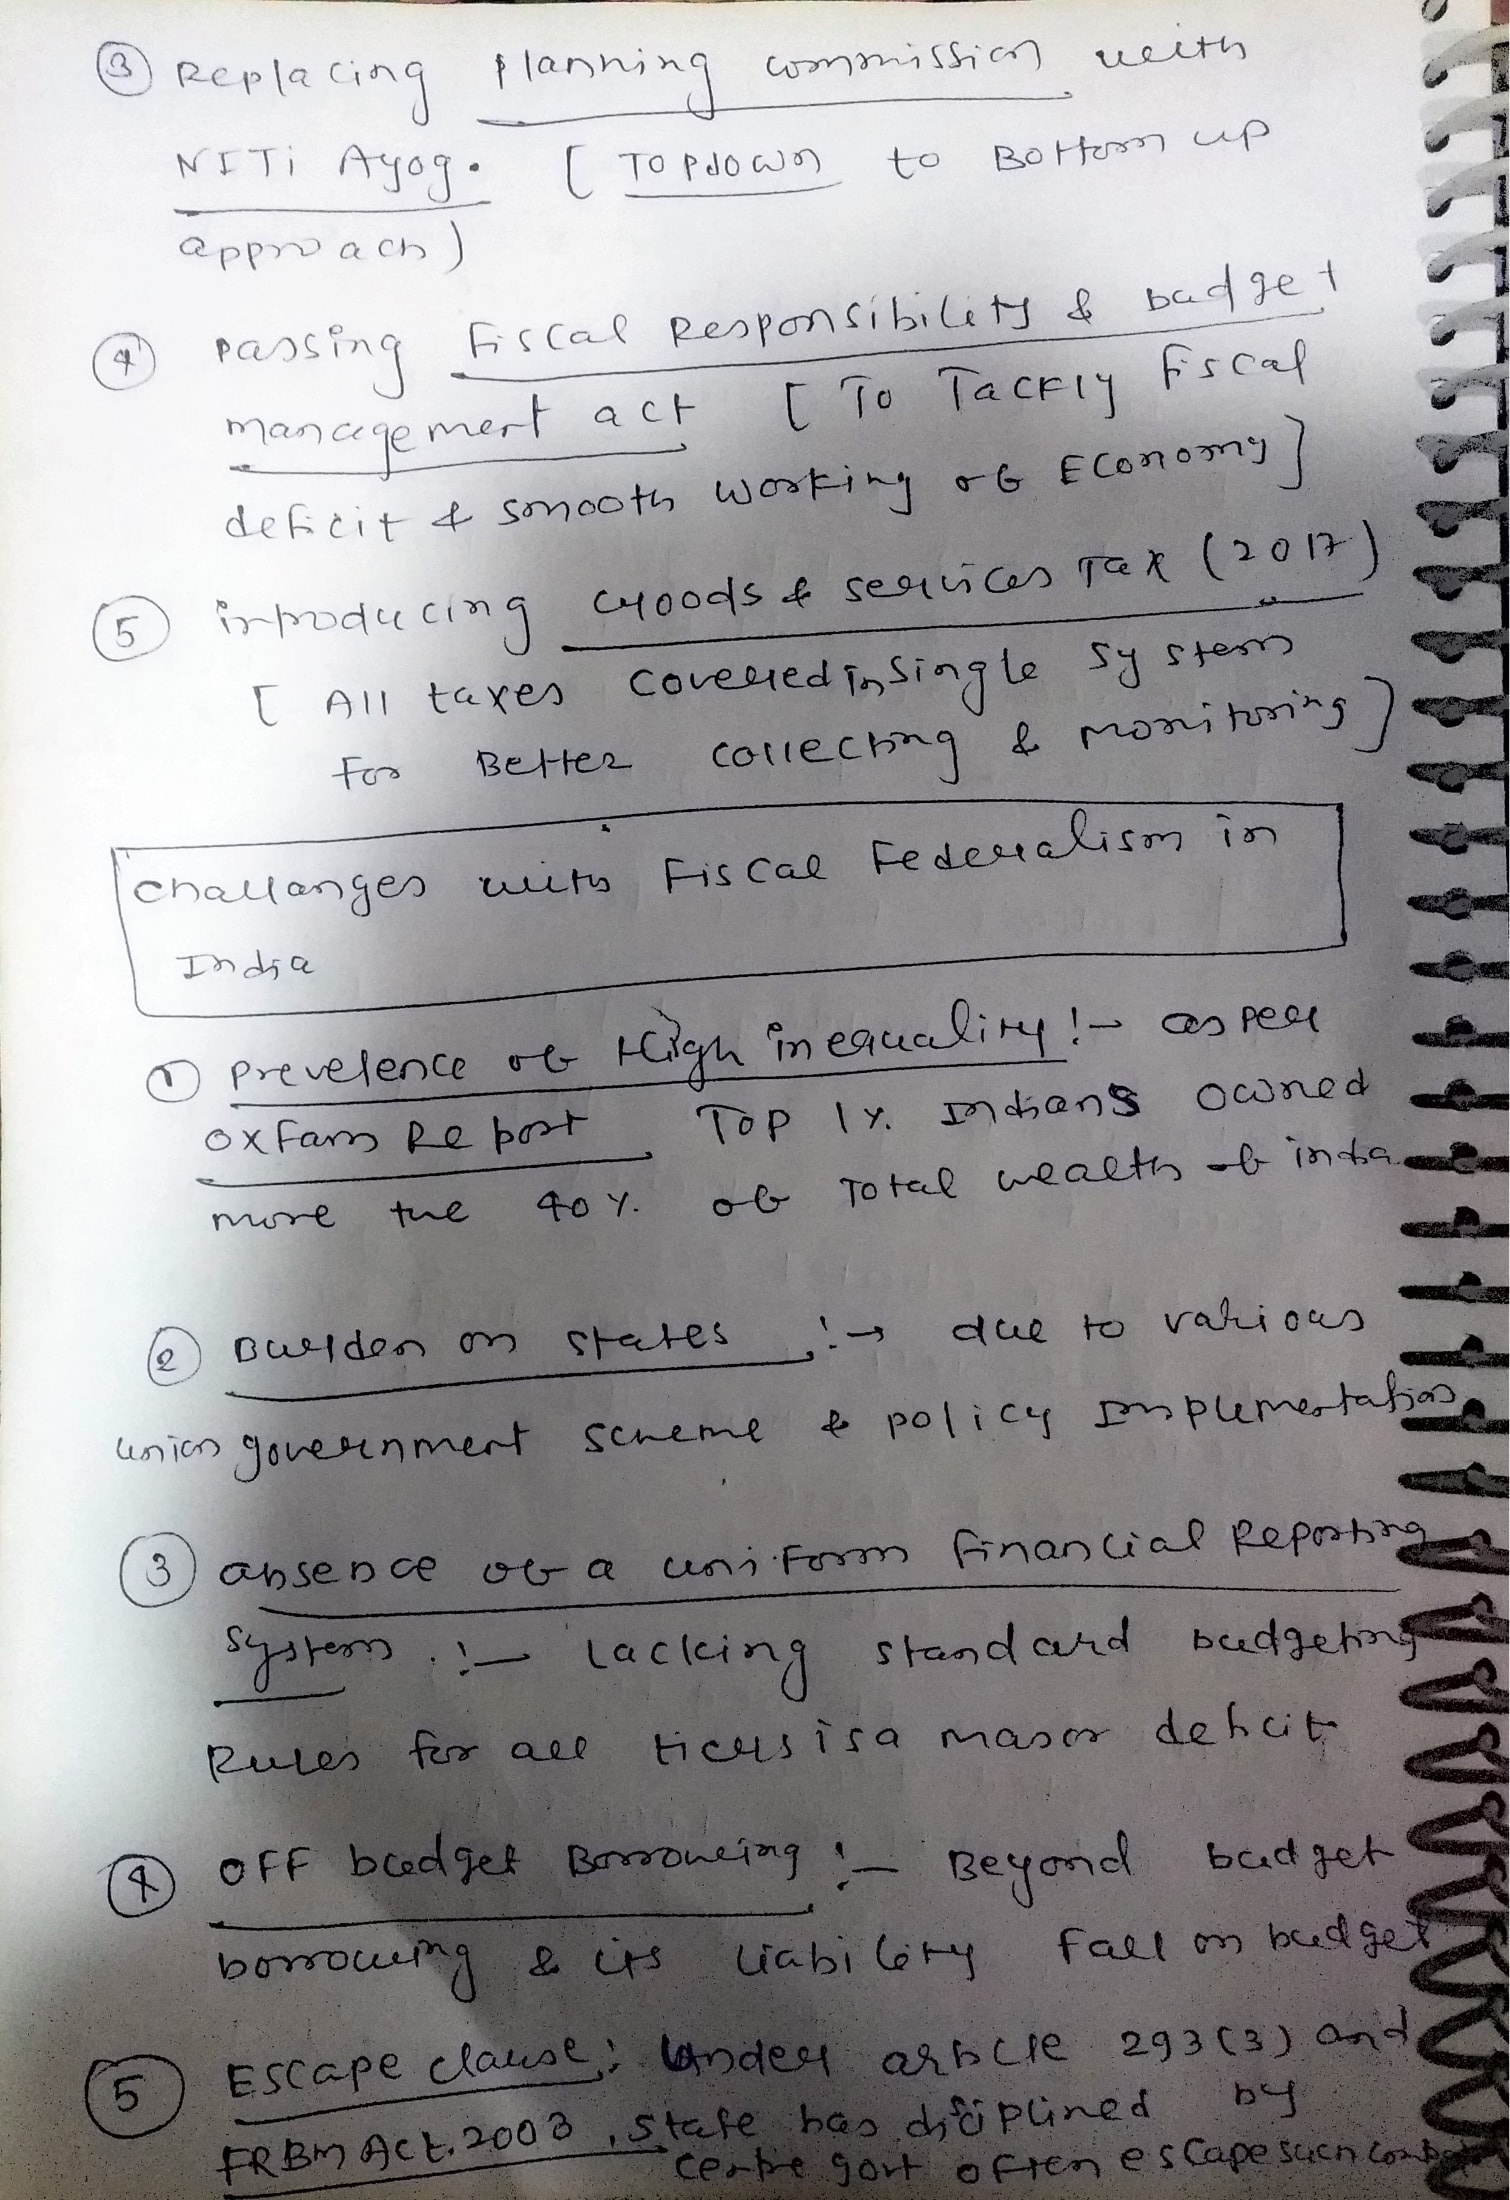 ③ Replacing planning commission with
NITi Ayog. [ TOPdown to Bottom up
approach )
④ passing fiscal Responsibility & budget
management act [ To Tackly fiscal
deficit & smooth working of Economy ]
⑤ introducing Goods & services Tax (2017)
[ All taxes covered in single system
for Better collecting & monitoring ]
challanges with Fiscal Federalism in
India
① prevelence of High inequality :- as per
oxfam Report Top 1% Indians owned
more the 40% of Total wealth of india
② Burden on states :→ due to various
union government scheme & policy Implementation
③ absence of a uniform financial Reporting
system :- lacking standard budgeting
Rules for all tiers is a major deficit
④ OFF budget Borrowing :- Beyond budget
borrowing & its liability fall on budget
⑤ Escape clause: Under article 293(3) and
FRBM Act. 2003, state has disiplined by
centre govt often escape such